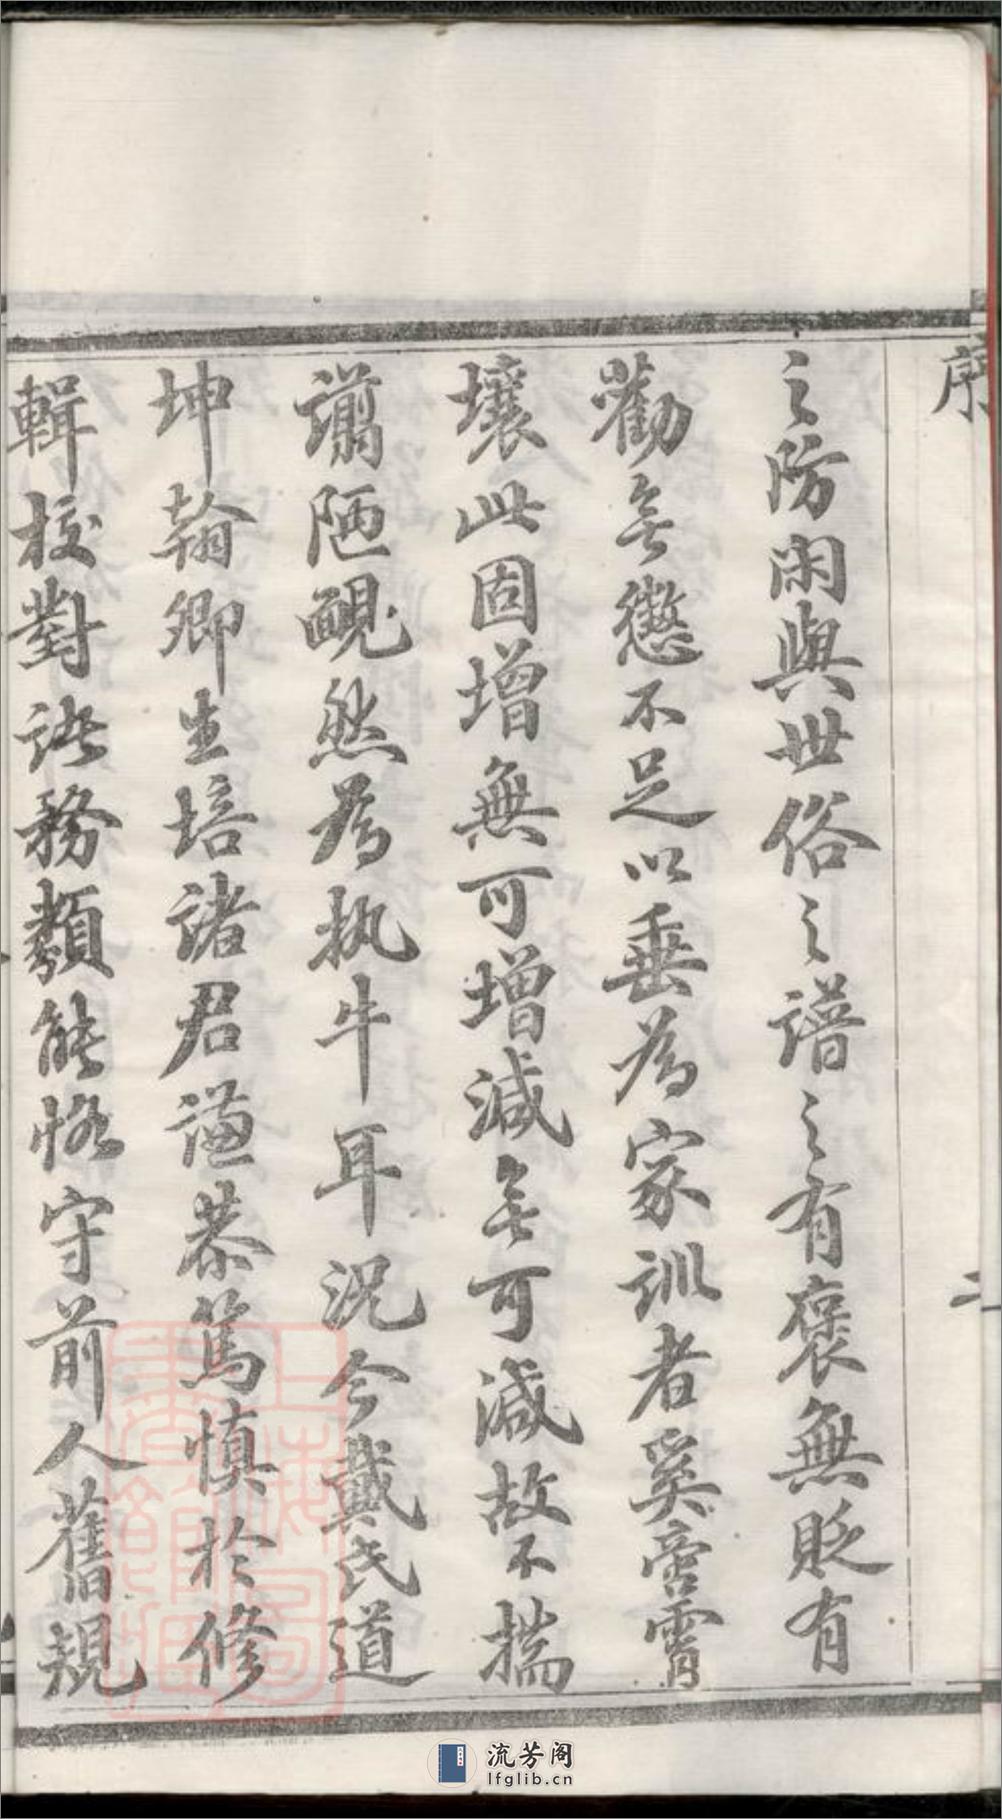 序
二
之防閑與世俗之譜之有褒無貶有
勸無懲不足以垂為家訓者奚啻霄
壤此固增無可增減無可減故不揣
譾陋靦然為执牛耳況今戴氏道
坤翰卿生培諸君謙恭篤慎於修
輯校對諸務類能恪守前人舊規
流芳阁
lfglib.cn